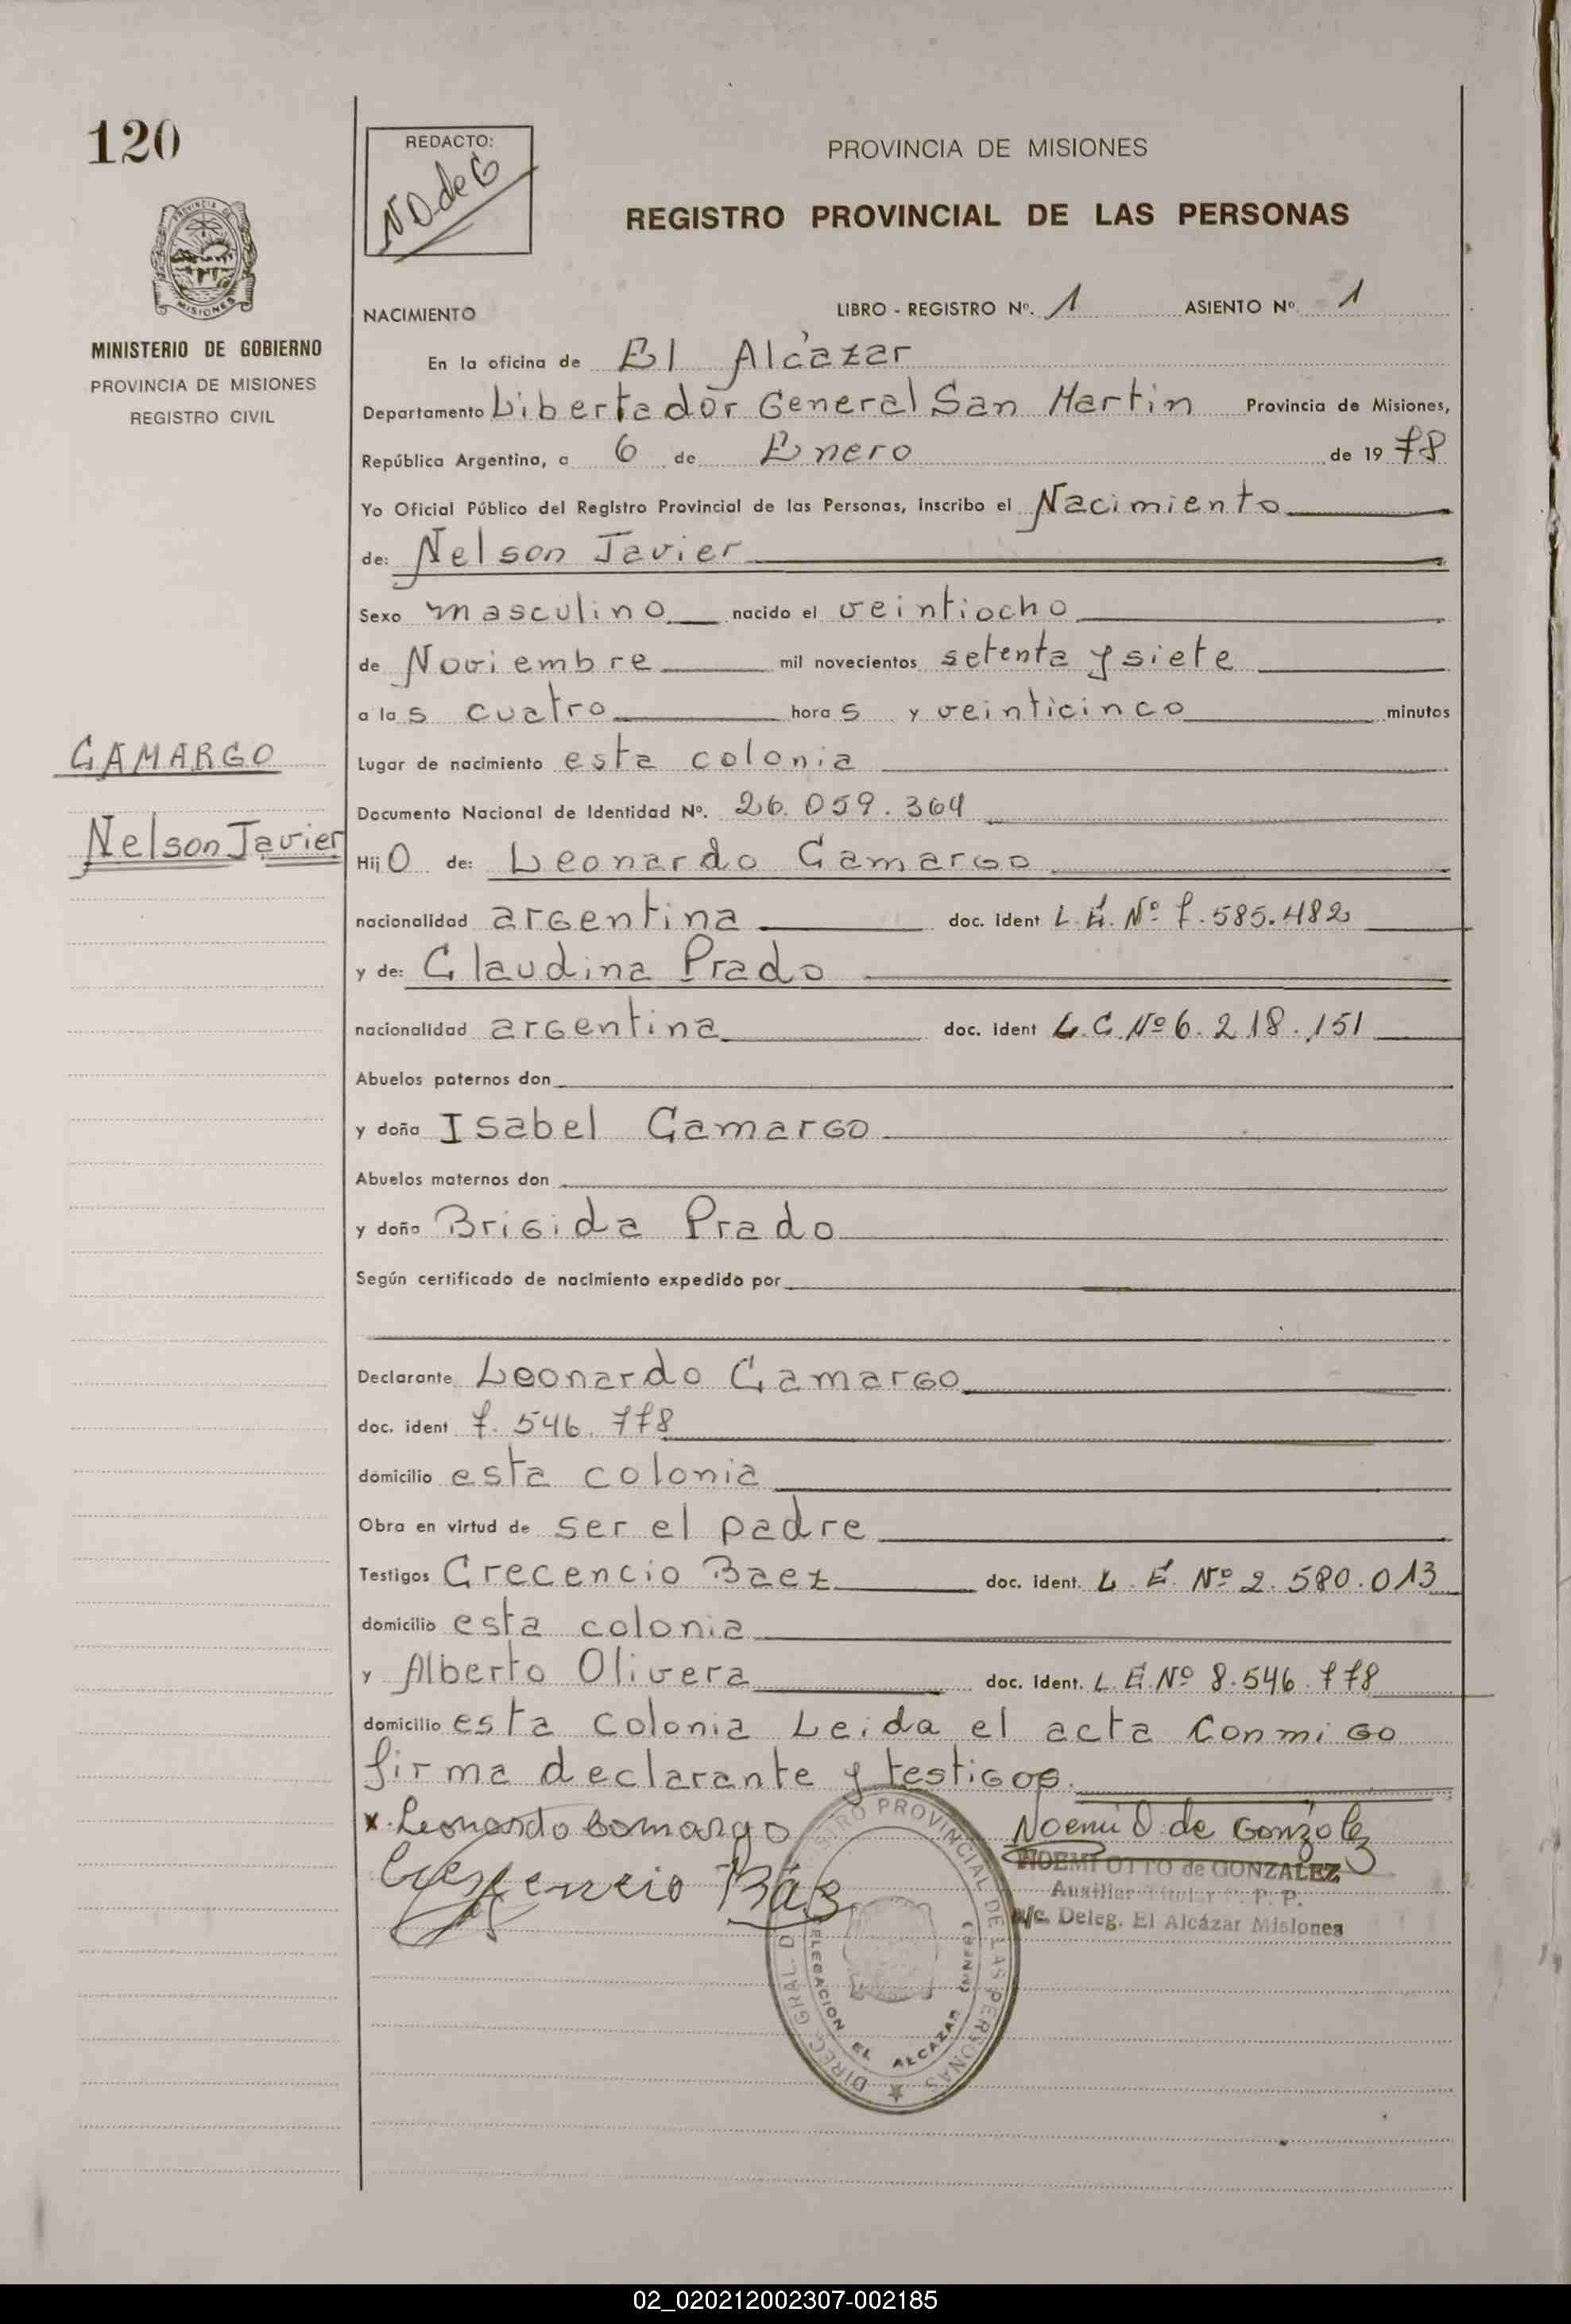 120
REDACTO:
N O de G
PROVINCIA DE MISIONES
REGISTRO PROVINCIAL DE LAS PERSONAS
MISIONES
MINISTERIO DE GOBIERNO
PROVINCIA DE MISIONES
REGISTRO CIVIL
NACIMIENTO LIBRO - REGISTRO Nº. 1 ASIENTO Nº 1
En la oficina de El Alcázar
Departamento Libertador General San Martin Provincia de Misiones,
República Argentina, a 6 de Enero de 19 78
Yo Oficial Público del Registro Provincial de las Personas, inscribo el Nacimiento
de: Nelson Javier
Sexo masculino nacido el veintiocho
de Noviembre mil novecientos setenta y siete
a las cuatro horas y veinticinco minutos
CAMARGO
Lugar de nacimiento esta colonia
Documento Nacional de Identidad Nº. 26.059.364
Nelson Javier
Hijo de: Leonardo Camargo
nacionalidad argentina doc. ident L.E. Nº 7.585.482
y de: Claudina Prado
nacionalidad argentina doc. ident L.C. Nº 6.218.151
Abuelos paternos don
y doña Isabel Camargo
Abuelos maternos don
y doña Brigida Prado
Según certificado de nacimiento expedido por
Declarante Leonardo Camargo
doc. ident 7.546.778
domicilio esta colonia
Obra en virtud de ser el padre
Testigos Crecencio Baez doc. ident. L.E. Nº 2.580.013
domicilio esta colonia
y Alberto Olivera doc. Ident. L.E. Nº 8.546.778
domicilio esta colonia Leida el acta conmigo
firma declarante y testigos.
x Leonardo Camargo
Noemi O de Gonzalez
Crescencio Báez
NOEMI OTTO de GONZALEZ
Auxiliar Titular R. P. P.
a/c. Deleg. El Alcázar Misiones
DIRECC GRAL D REGISTRO PROVINCIAL DE LAS PERSONAS
DELEGACION EL ALCAZAR
02_020212002307-002185